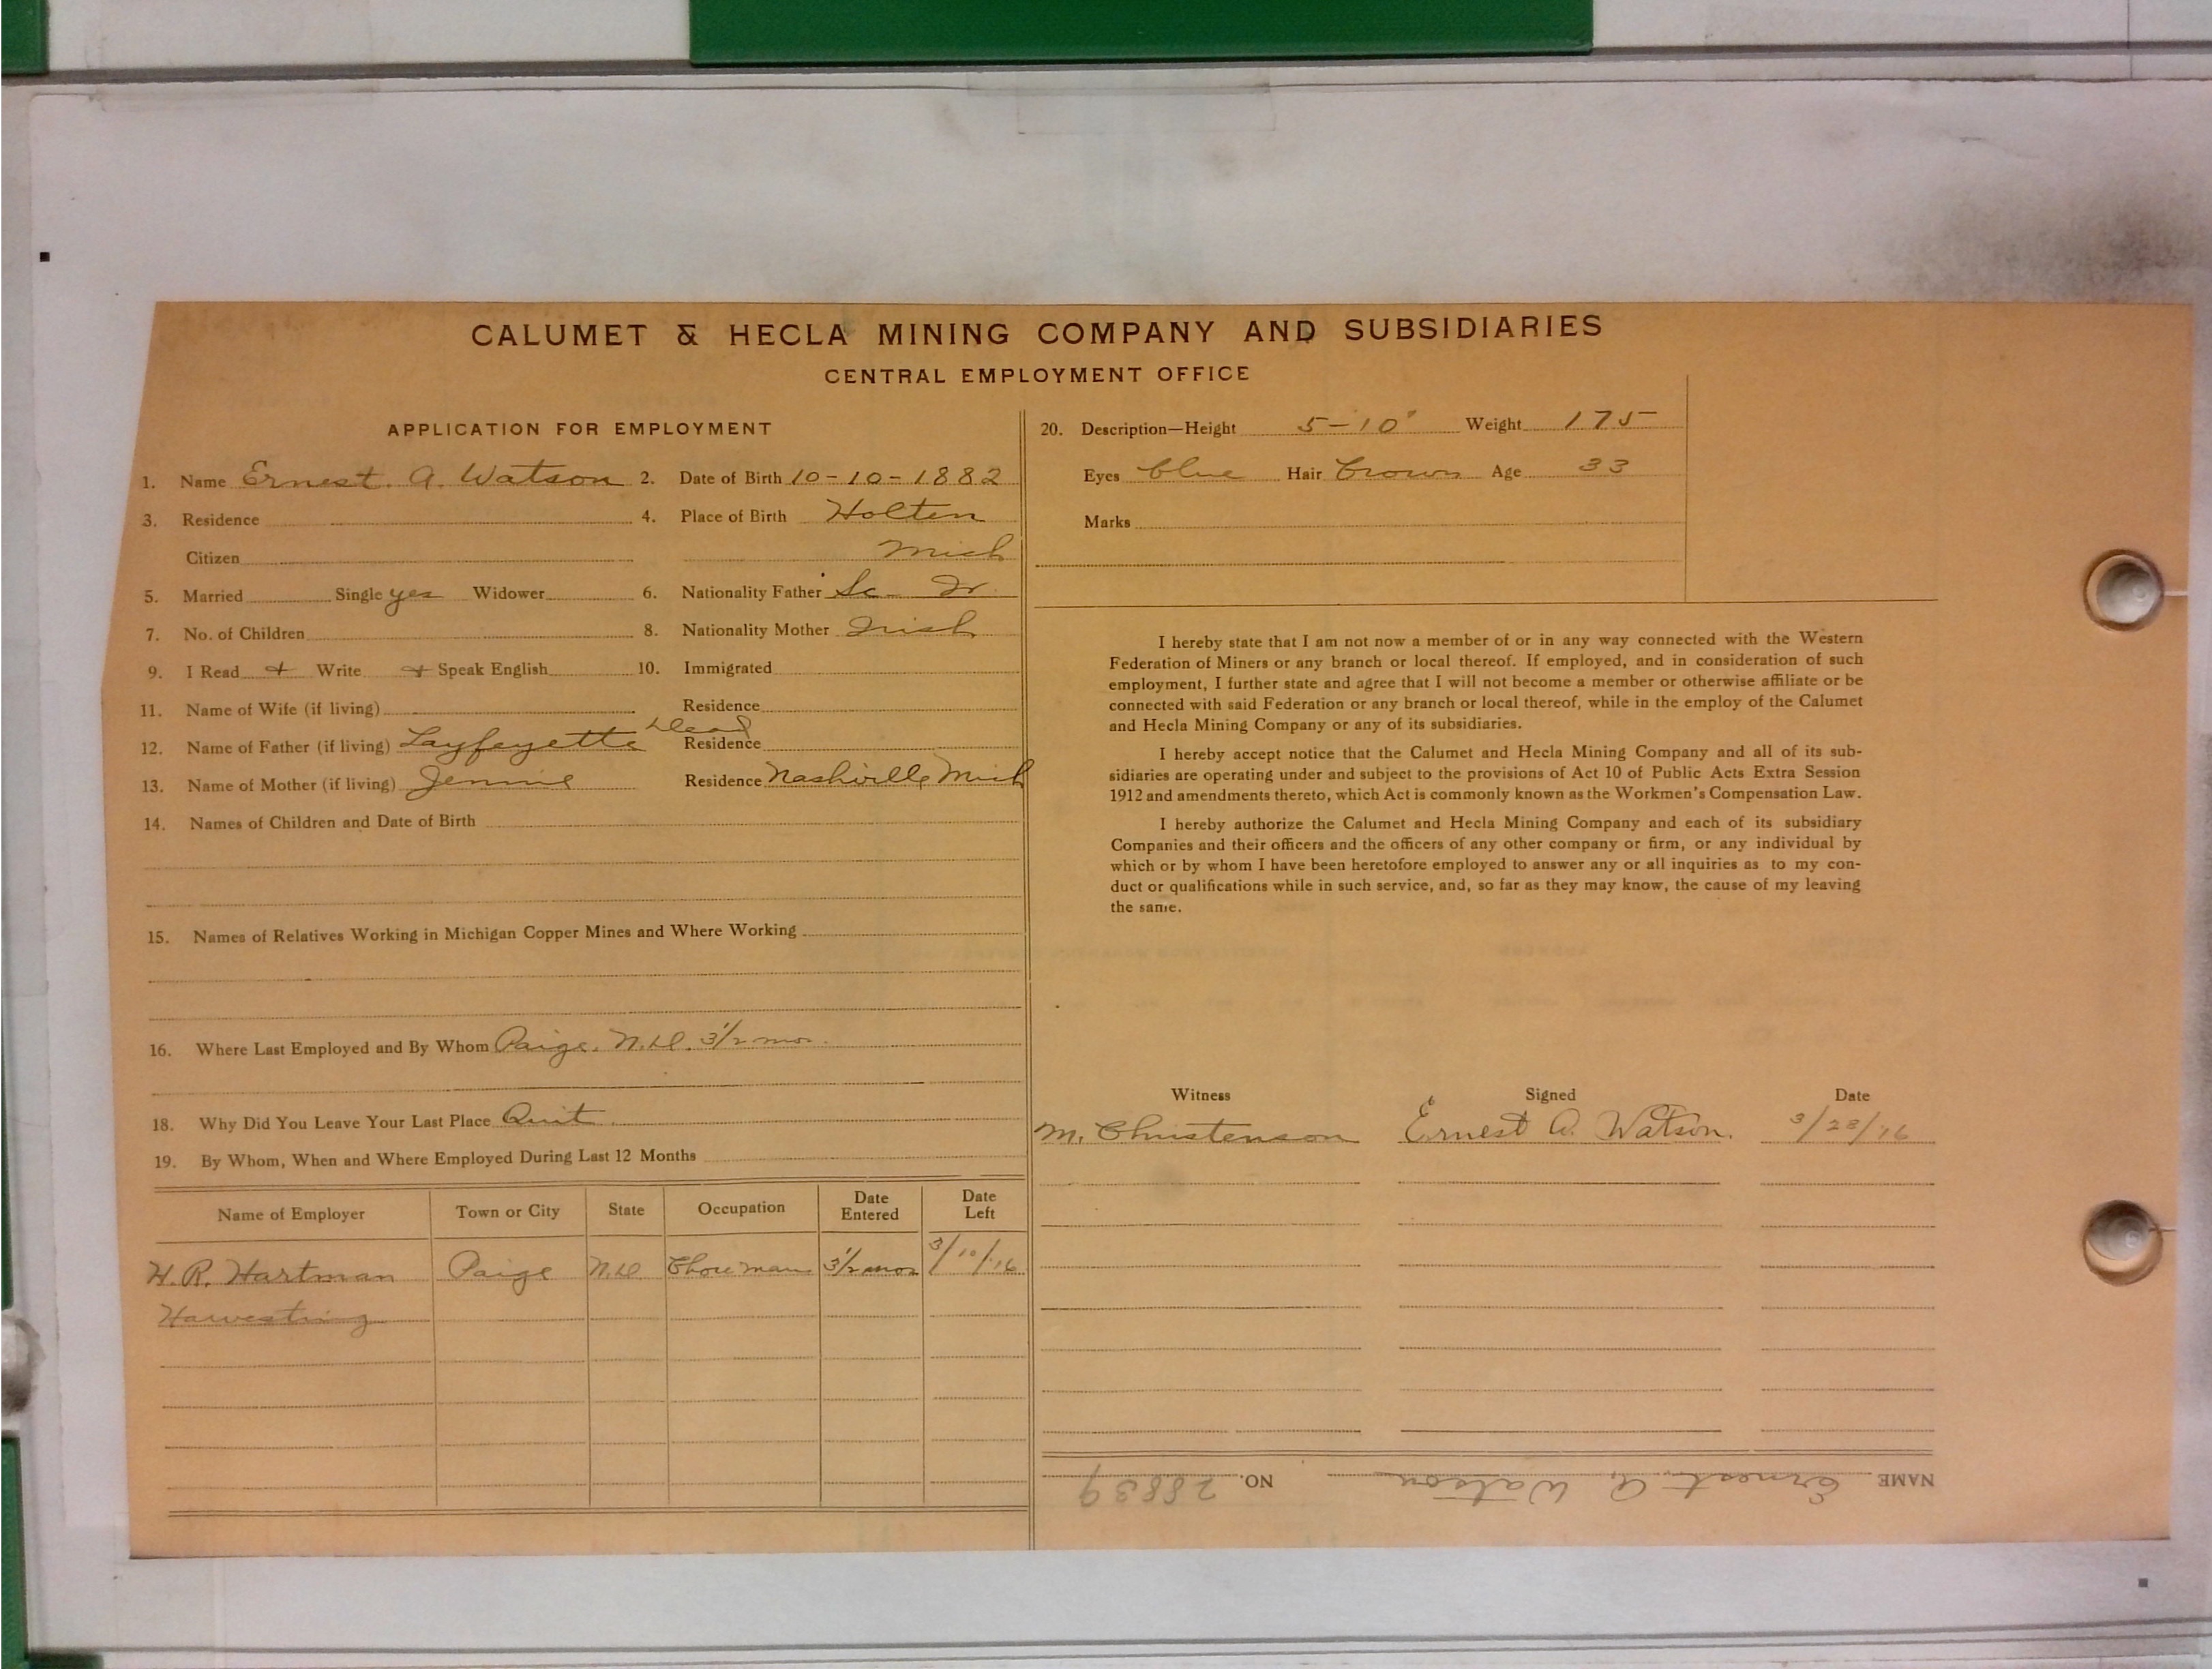 CALUMET & HECLA MINING COMPANY AND SUBSIDIARIES
CENTRAL EMPLOYMENT OFFICE
APPLICATION FOR EMPLOYMENT
1. Name Ernest. A. Watson 2. Date of Birth 10-10-1882
3. Residence 4. Place of Birth Holten
Citizen Mich
5. Married Single yes Widower 6. Nationality Father Sc Ir
7. No. of Children 8. Nationality Mother Irish
9. I Read + Write + Speak English 10. Immigrated
11. Name of Wife (if living) Residence
12. Name of Father (if living) Layfayette Dead Residence
13. Name of Mother (if living) Jennie Residence Nashville Mich
14. Names of Children and Date of Birth
15. Names of Relatives Working in Michigan Copper Mines and Where Working
16. Where Last Employed and By Whom Paige. N.D. 3 1/2 mos.
18. Why Did You Leave Your Last Place Quit
19. By Whom, When and Where Employed During Last 12 Months
Name of Employer Town or City State Occupation Date Entered Date Left
H. R. Hartman Paige N.D Chore man 3 1/2 mos 3/10/16
Harvesting
20. Description—Height 5-10" Weight 175
Eyes blue Hair brown Age 33
Marks
I hereby state that I am not now a member of or in any way connected with the Western
Federation of Miners or any branch or local thereof. If employed, and in consideration of such
employment, I further state and agree that I will not become a member or otherwise affiliate or be
connected with said Federation or any branch or local thereof, while in the employ of the Calumet
and Hecla Mining Company or any of its subsidiaries.
I hereby accept notice that the Calumet and Hecla Mining Company and all of its sub-
sidiaries are operating under and subject to the provisions of Act 10 of Public Acts Extra Session
1912 and amendments thereto, which Act is commonly known as the Workmen's Compensation Law.
I hereby authorize the Calumet and Hecla Mining Company and each of its subsidiary
Companies and their officers and the officers of any other company or firm, or any individual by
which or by whom I have been heretofore employed to answer any or all inquiries as to my con-
duct or qualifications while in such service, and, so far as they may know, the cause of my leaving
the same.
Witness Signed Date
M. Christenson Ernest A. Watson. 3/28/16
NAME Ernest A. Watson NO. 28839